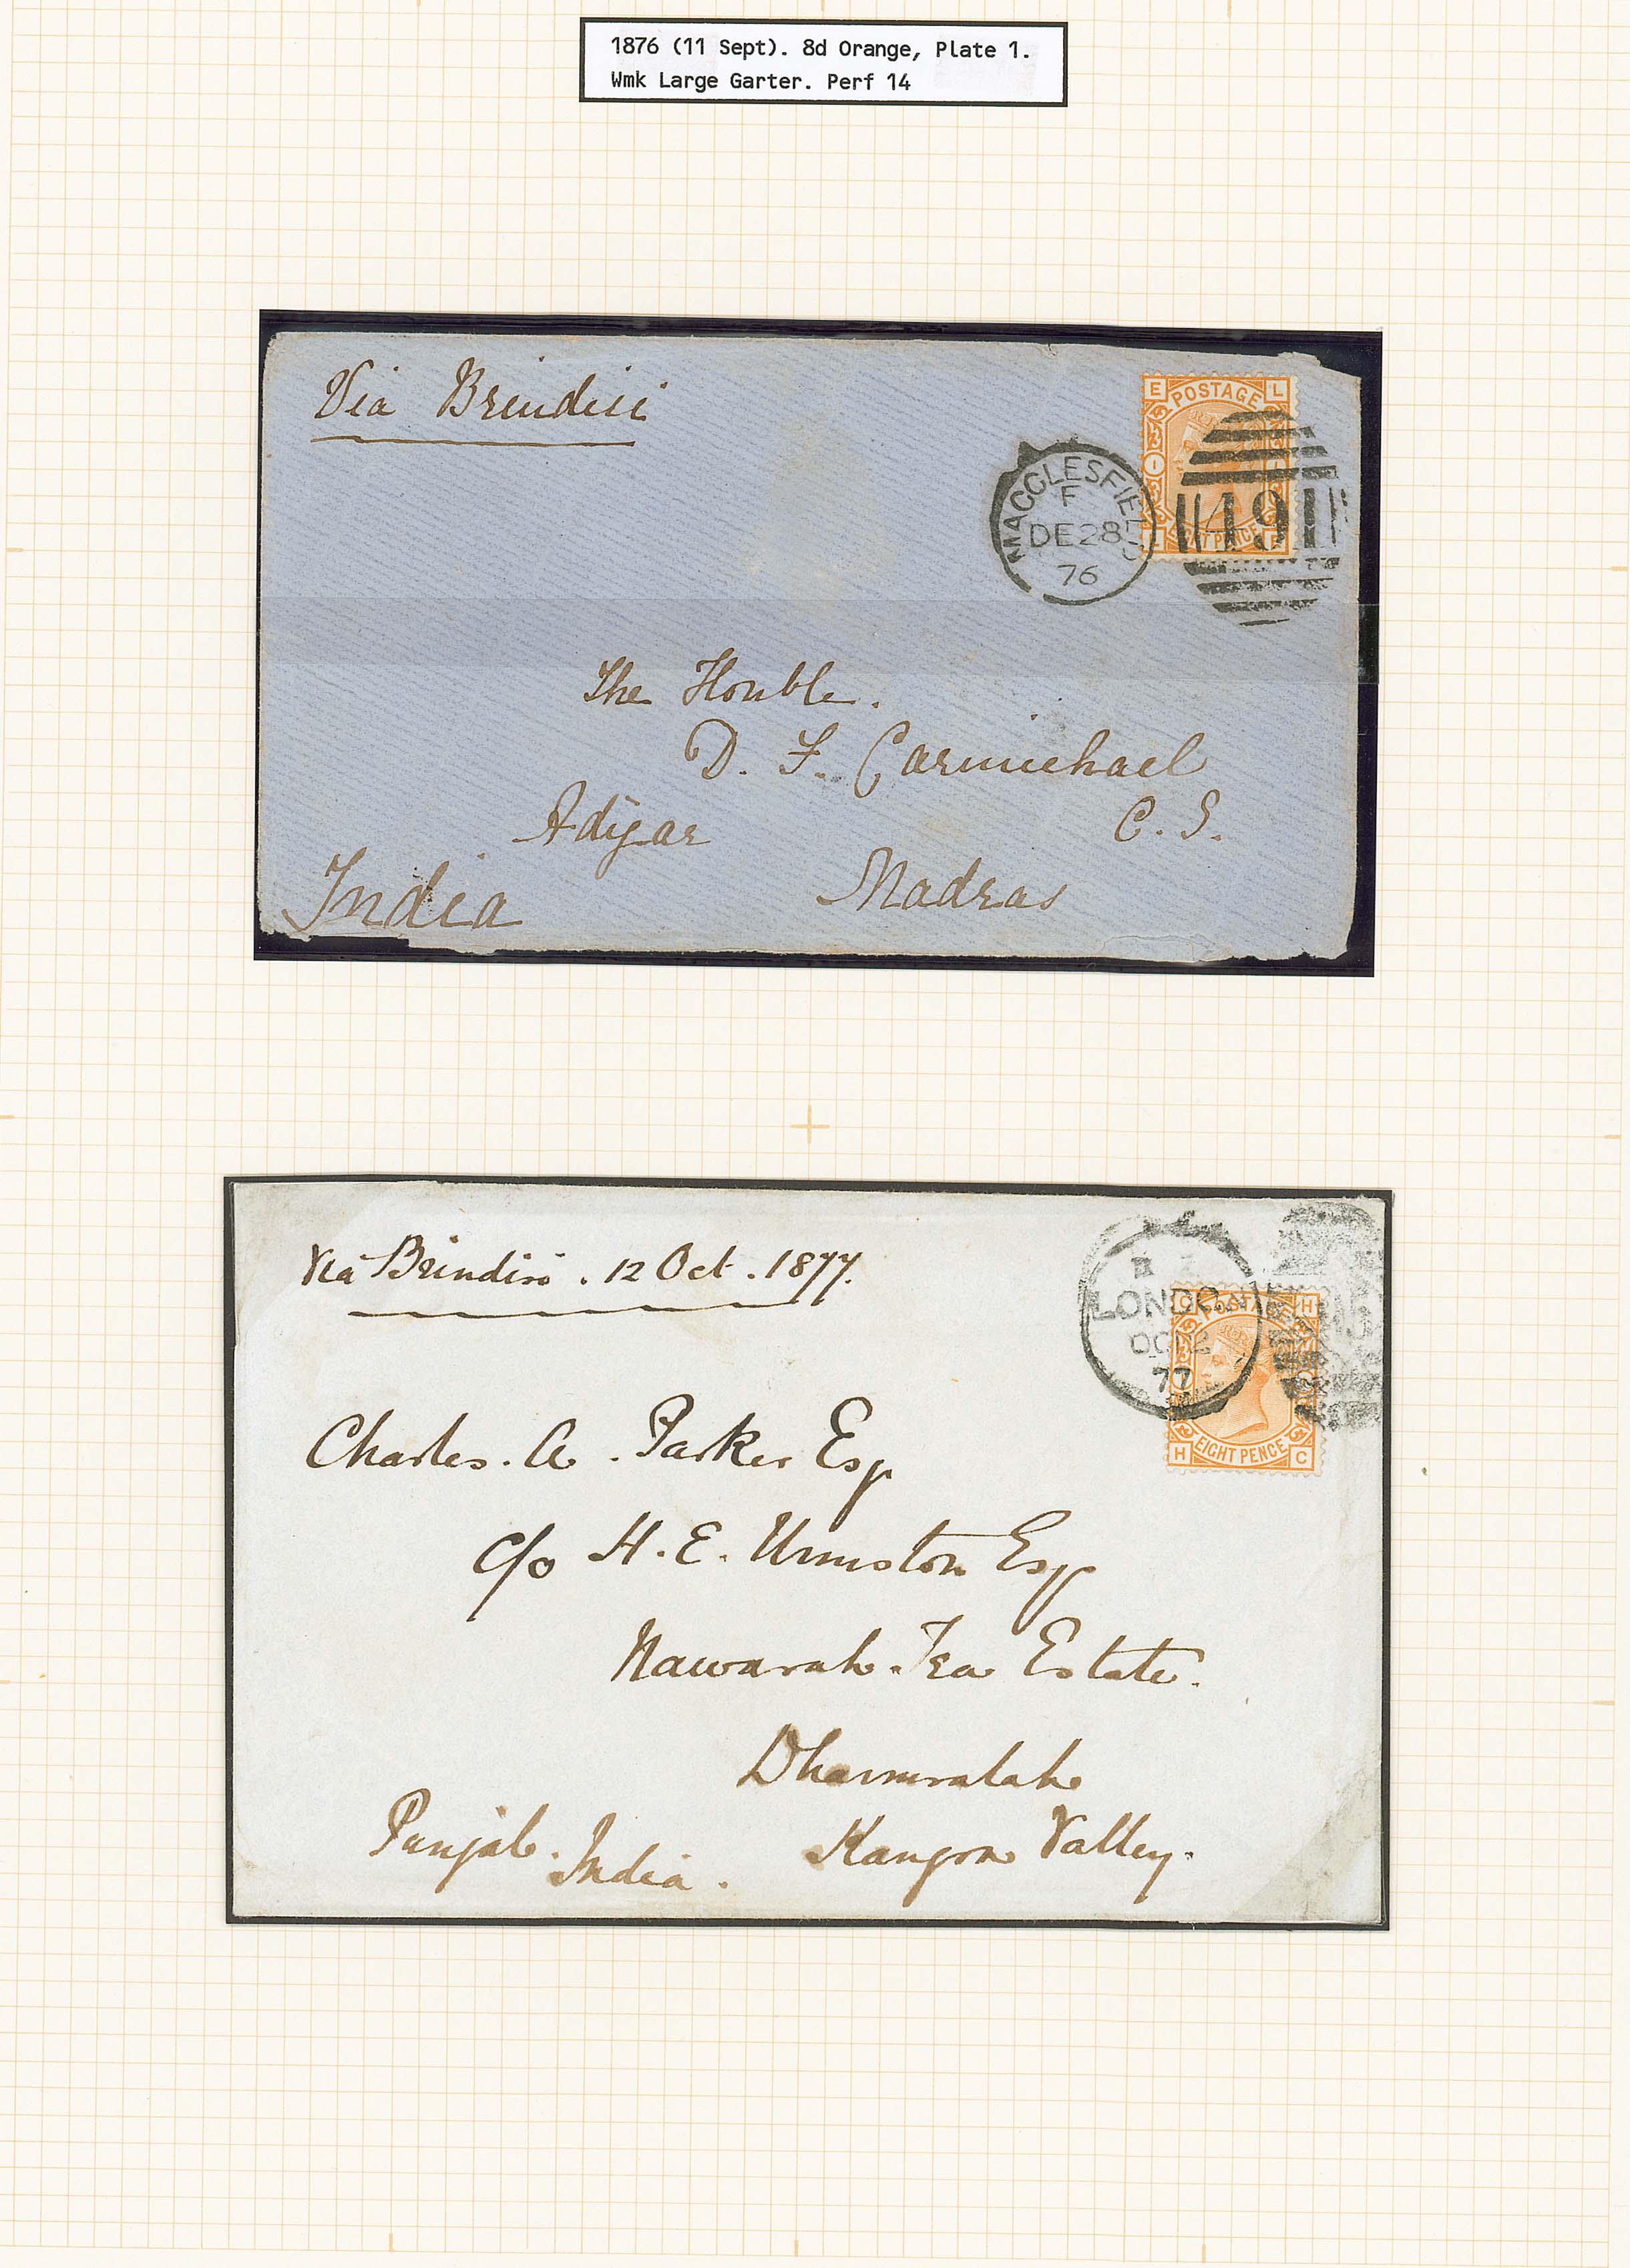 1876 (11 Sept). 8d Orange, Plate 1.
Wmk Large Garter. Perf 14
Via Brindisi
E POSTAGE L
MACCLESFIELD
F
DE 28
76
491
The Honble.
D. F. Carmichael
Adyar C. S.
India Madras
Via Brindisi . 12 Oct . 1877.
LONDON
OC 12
77
H
EIGHT PENCE
H C
Charles . A . Parker Esq
c/o H. E. Urmston Esq
Nawarah . Tea Estate.
Dharmsalah
Punjab . India . Kangra Valley .